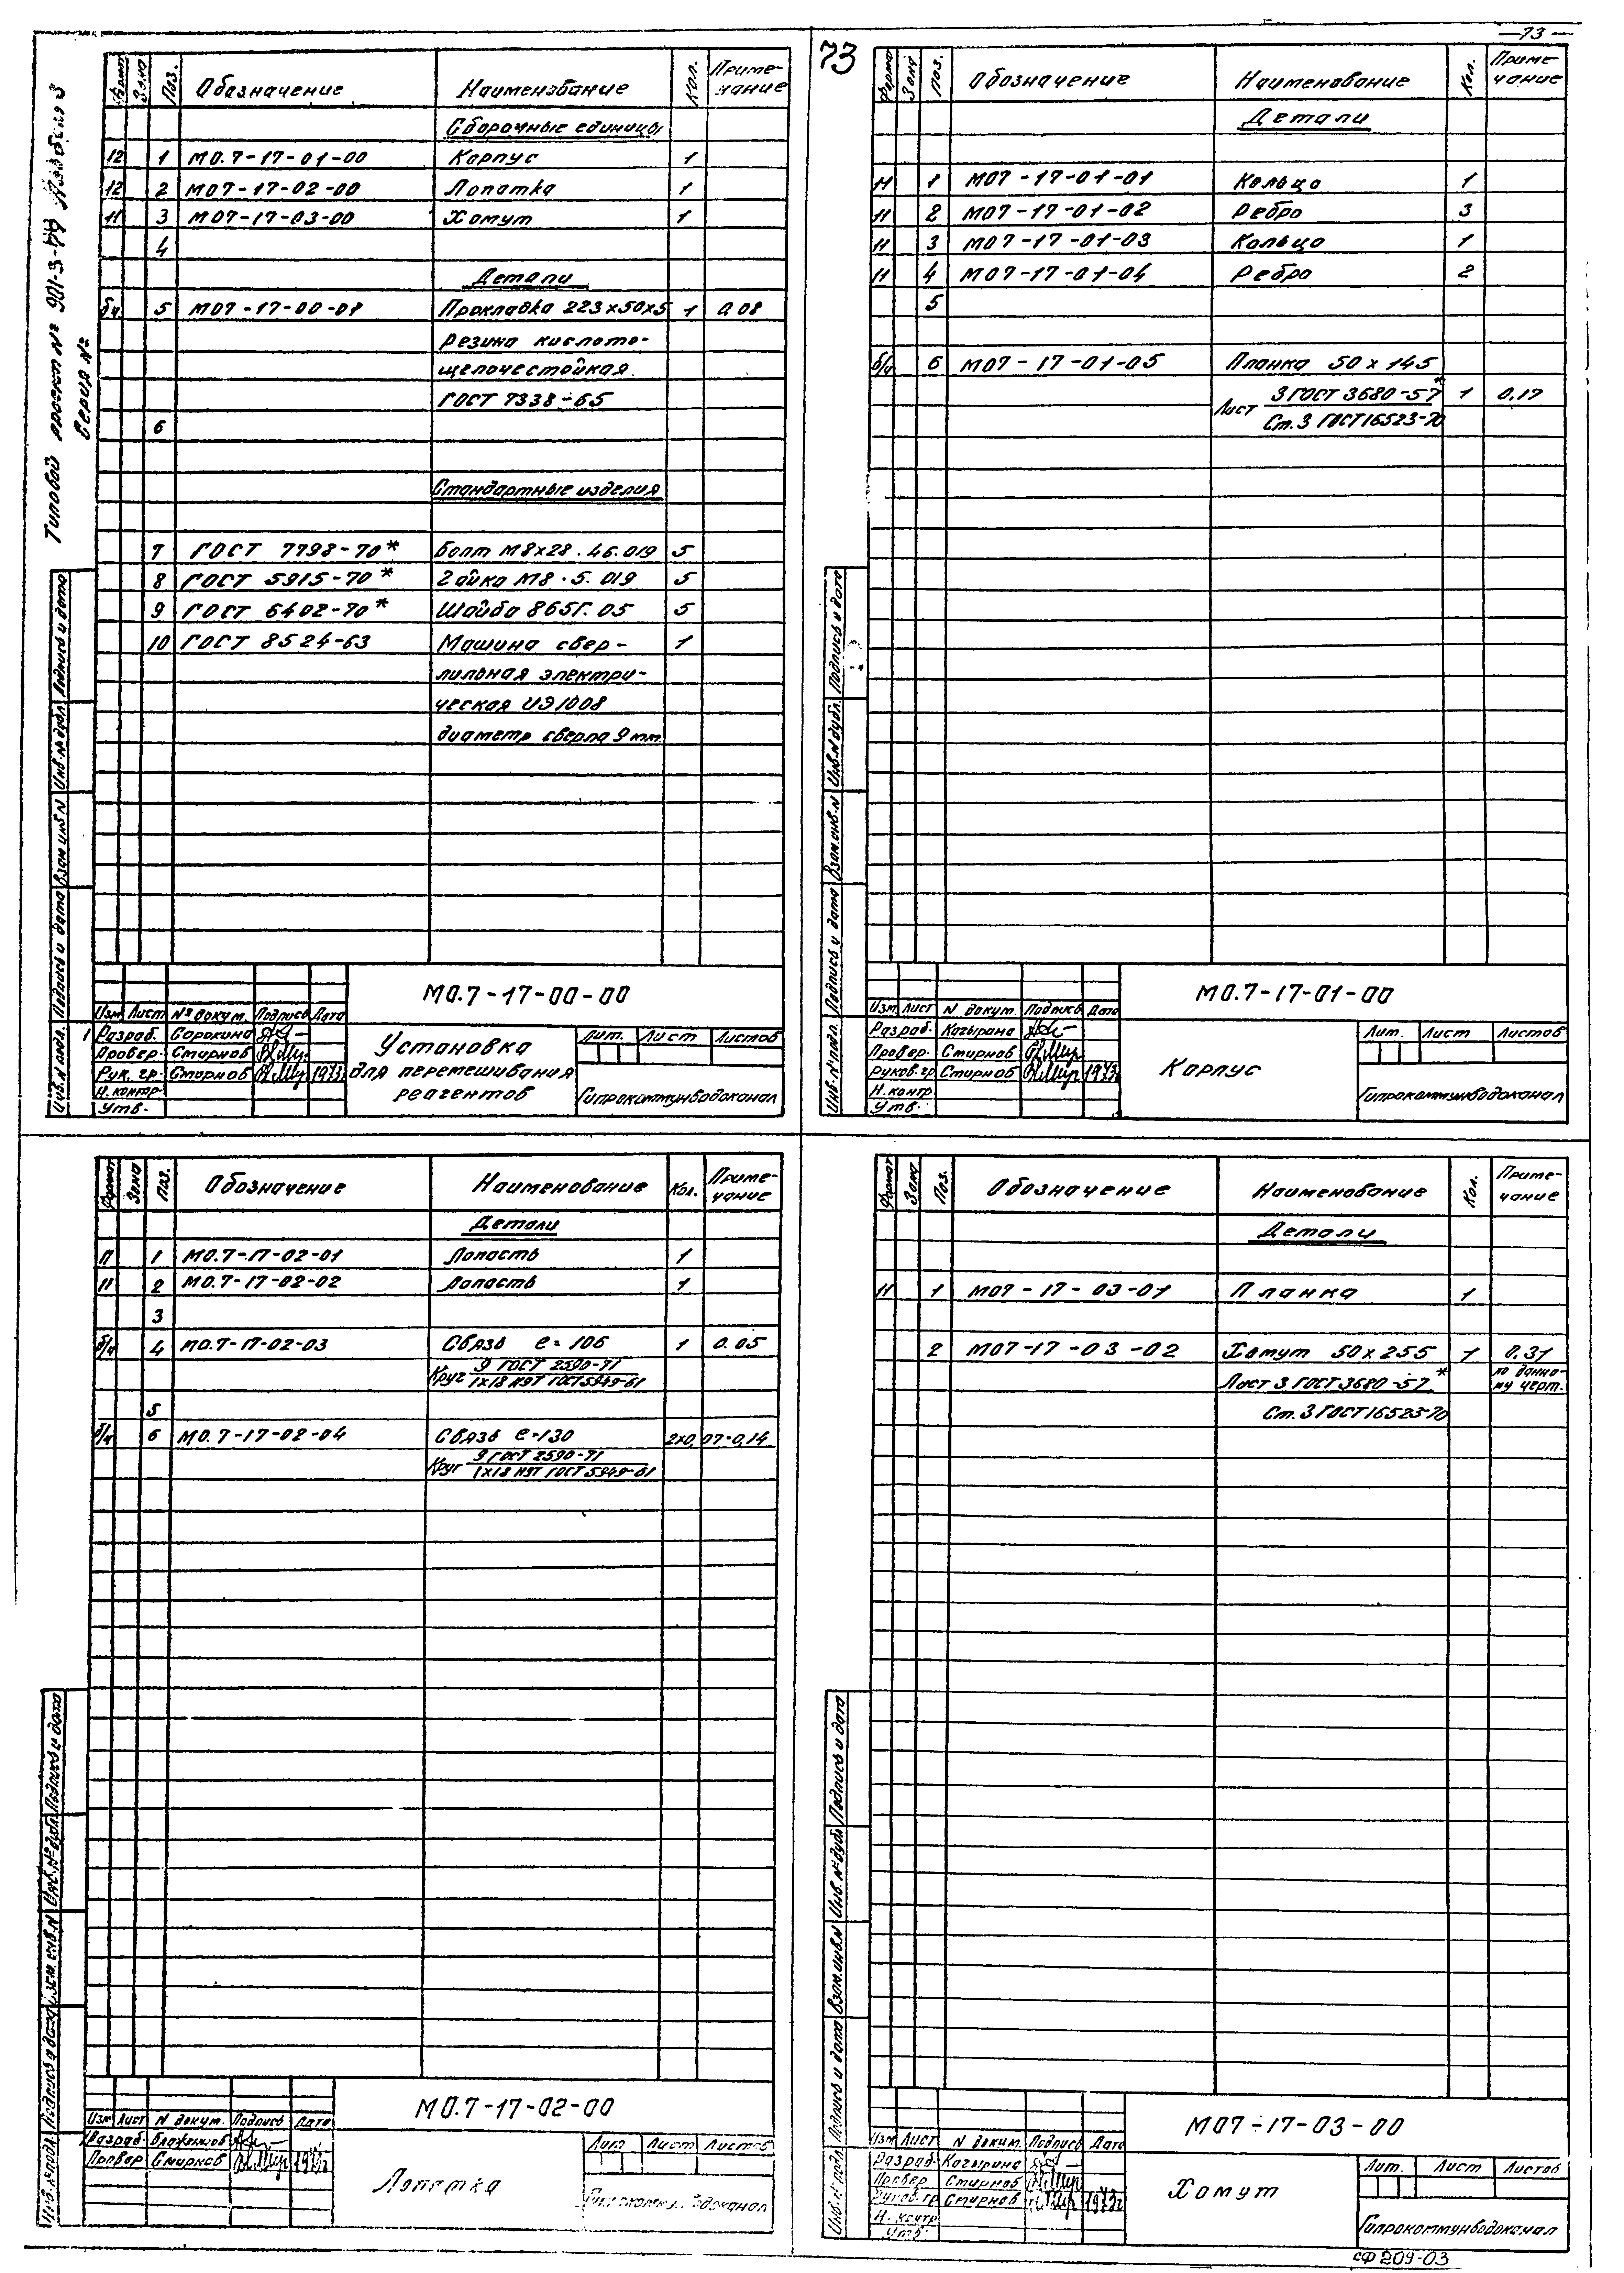 —73—
73
Типовой проект № 901-3-
Серия №
Формат Зона Поз. Обозначение Наименование Кол. Приме-
чание
Сборочные единицы
12 1 М0.7-17-01-00 Корпус 1
12 2 М07-17-02-00 Лопатка 1
11 3 М07-17-03-00 Хомут 1
4
Детали
б/ч 5 М07-17-00-01 Прокладка 223х50х5 1 0.08
Резина кислото-
щелочестойкая
ГОСТ 7338-65
6
Стандартные изделия
7 ГОСТ 7798-70* Болт М8х28.46.019 5
8 ГОСТ 5915-70* Гайка М8.5.019 5
9 ГОСТ 6402-70* Шайба 865Г.05 5
10 ГОСТ 8524-63 Машина свер-
лильная электри-
ческая ИЭ1008
диаметр сверла 9 mm
Инв. N подл. Подпись и дата Взам инв. N Инв. № дубл. Подпись и дата
М0.7-17-00-00
Изм Лист № докум. Подпись Дата
1 Разраб. Сорокина
Провер. Смирнов
Рук. гр. Смирнов 1973
Н.контр.
Утв.
Установка
для перемешивания
реагентов
Лит. Лист Листов
Гипрокоммунводоканал
Формат Зона Поз. Обозначение Наименование Кол. Приме-
чание
Детали
11 1 М07-17-01-01 Кольцо 1
11 2 М07-17-01-02 Ребро 3
11 3 М07-17-01-03 Кольцо 1
11 4 М07-17-01-04 Ребро 2
5
б/ч 6 М07-17-01-05 Планка 50х145
Лист 3 ГОСТ 3680-57* 1 0.17
Ст.3 ГОСТ16523-70
Инв. № подл. Подпись и дата Взам.инв.N Инв.N дубл. Подпись и дата
М0.7-17-01-00
Изм Лист N докум. Подпись Дата
Разраб. Кагырина
Провер. Смирнов
Руков.гр Смирнов 1973г
Н.контр
Утв.
Корпус
Лит. Лист Листов
Гипрокоммунводоканал
Формат Зона Поз. Обозначение Наименование Кол. Приме-
чание
Детали
11 1 М0.7-17-02-01 Лопасть 1
11 2 М0.7-17-02-02 Лопасть 1
3
б/ч 4 М0.7-17-02-03 Связь е=106 1 0.05
Круг 9 ГОСТ 2590-71
1х18 Н9Т ГОСТ5949-61
5
б/ч 6 М0.7-17-02-04 Связь е=130 2х0,07=0,14
Круг 9 ГОСТ 2590-71
1х18 Н9Т ГОСТ5949-61
Инв. № подл. Подпись и дата Взам. инв.N Инв. № дубл. Подпись и дата
М0.7-17-02-00
Изм Лист N докум. Подпись Дата
Разраб. Блаженнов
Провер Смирнов
Лопатка
Лит Лист Листов
Гипрокоммунводоканал
Формат Зона Поз. Обозначение Наименование Кол. Приме-
чание
Детали
11 1 М07-17-03-01 Планка 1
2 М07-17-03-02 Хомут 50х255 1 0,31
Лист 3 ГОСТ3680-57* по данно-
му черт.
Ст.3 ГОСТ16523-70
Инв. № подл. Подпись и дата Взам.инв.N Инв. № дубл Подпись и дата
М07-17-03-00
Изм Лист N докум. Подпись Дата
Разраб. Кагырина
Провер Смирнов
Руков.гр Смирнов 1973г
Н. контр
Утв
Хомут
Лит. Лист Листов
Гипрокоммунводоканал
СФ 209-03